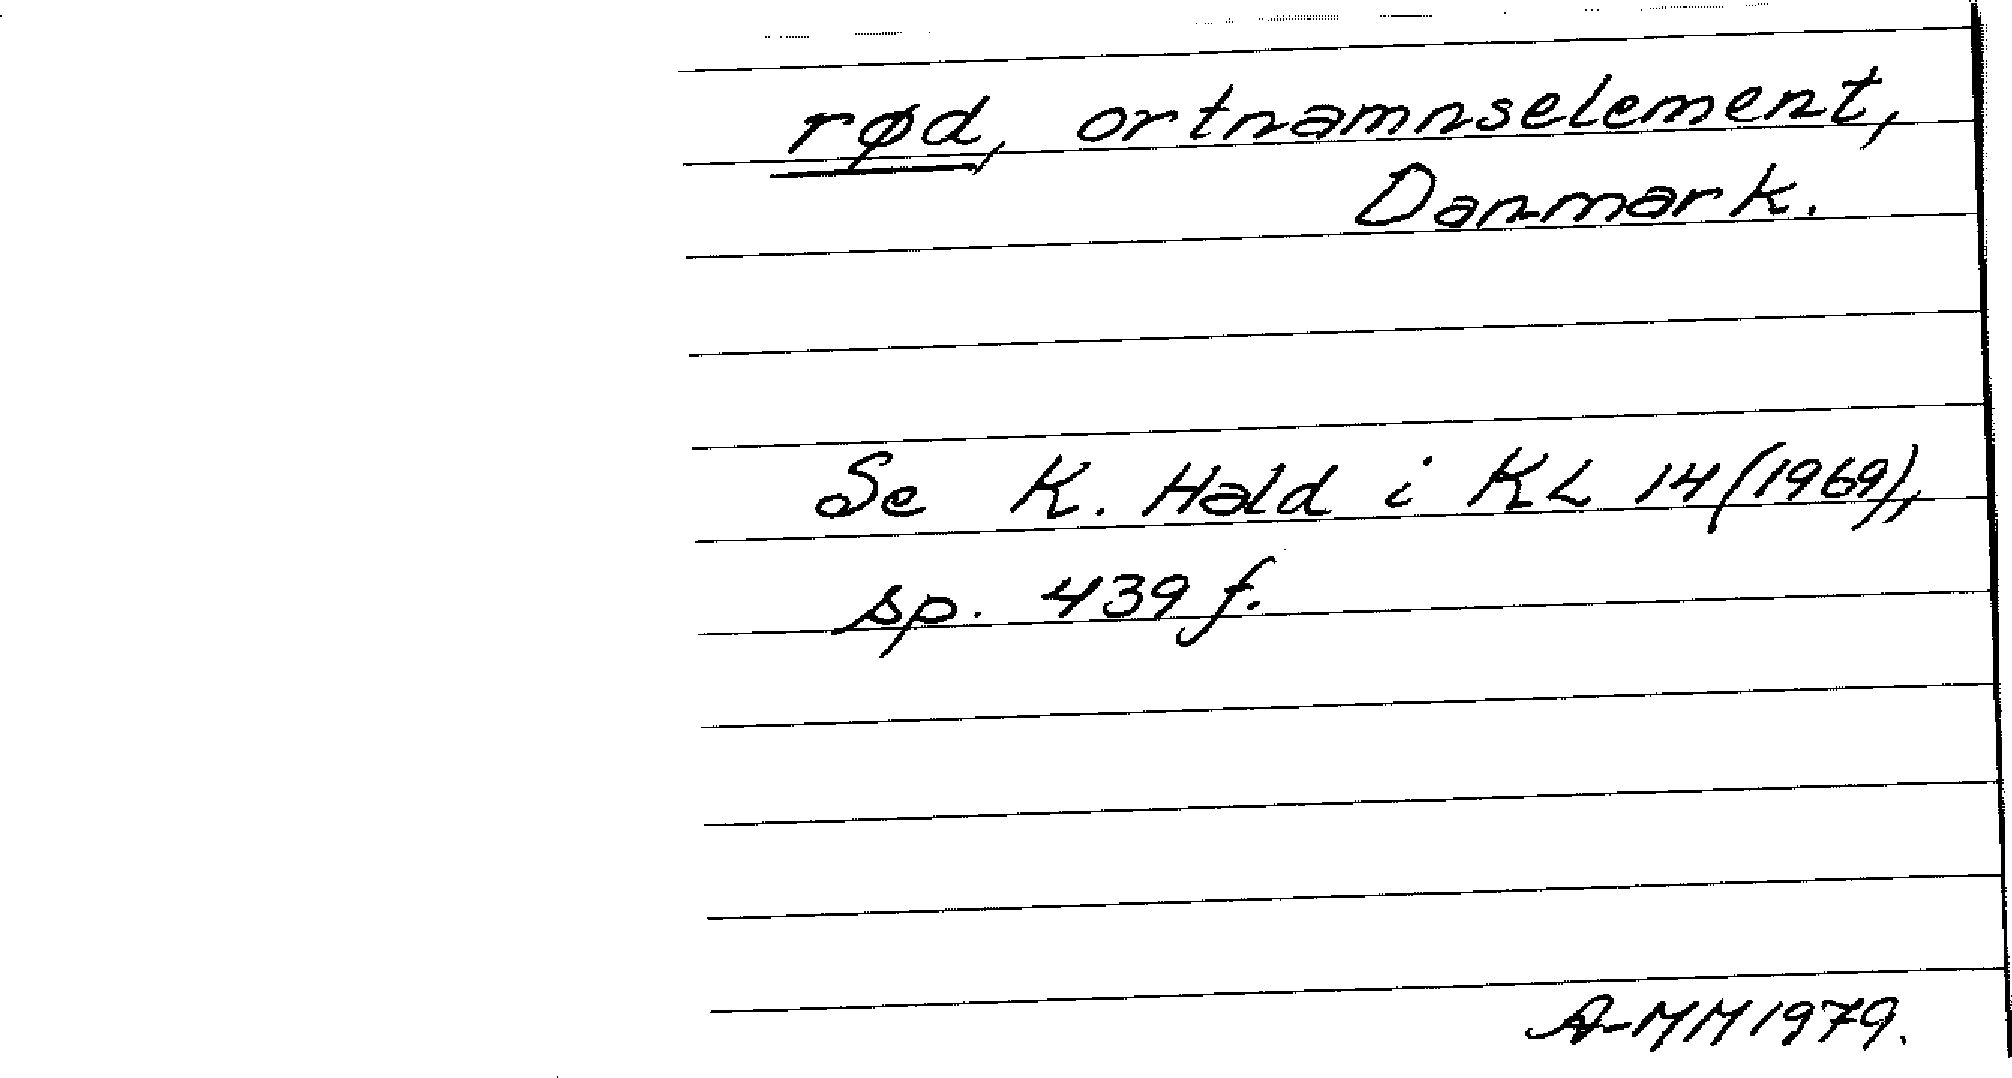 rød, ortnamnselement,
Danmark.
Se K. Hald i KL 14 (1969),
sp. 439 f.
A-MM 1979.